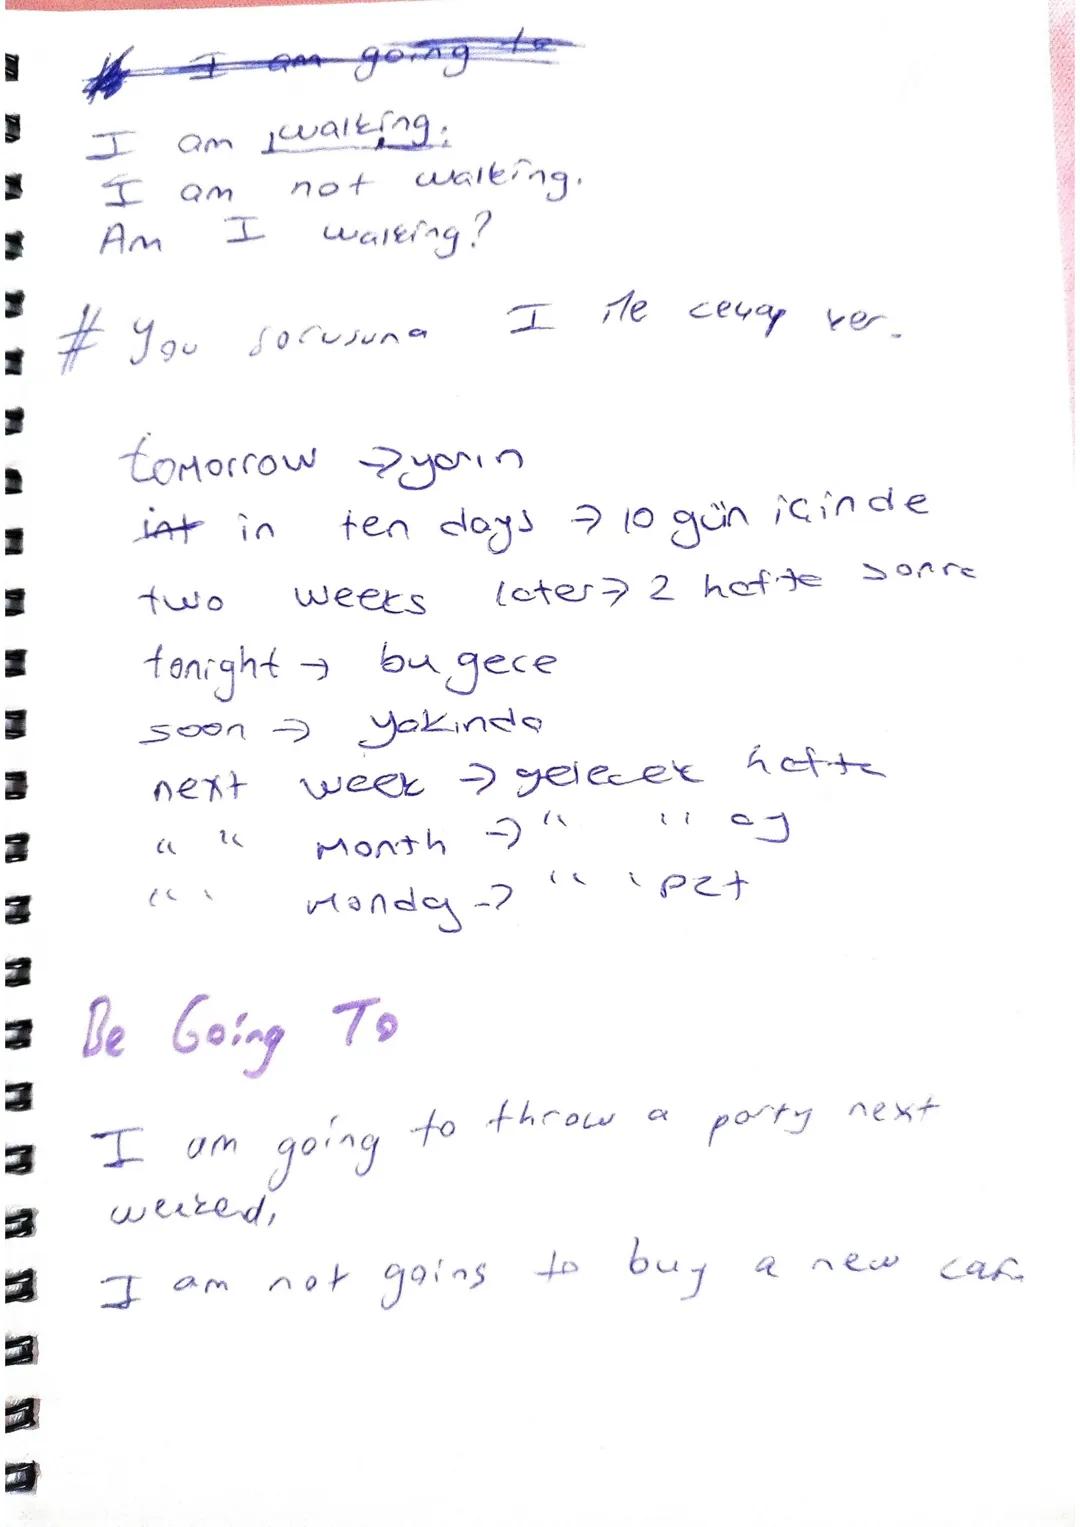 I am going to
I am walking.
I am not walking.
Am I walking?
# You sorusuna I ile cevap ver.
tomorrow → yarın
int in ten days → 10 gün içinde
two weeks later → 2 hafta sonra
tonight → bu gece
soon → yakında
next week → gelecek hafta
" " Month → " " ay
" " Monday → " " pzt
Be Going To
I am going to throw a party next
weekend,
I am not going to buy a new car.